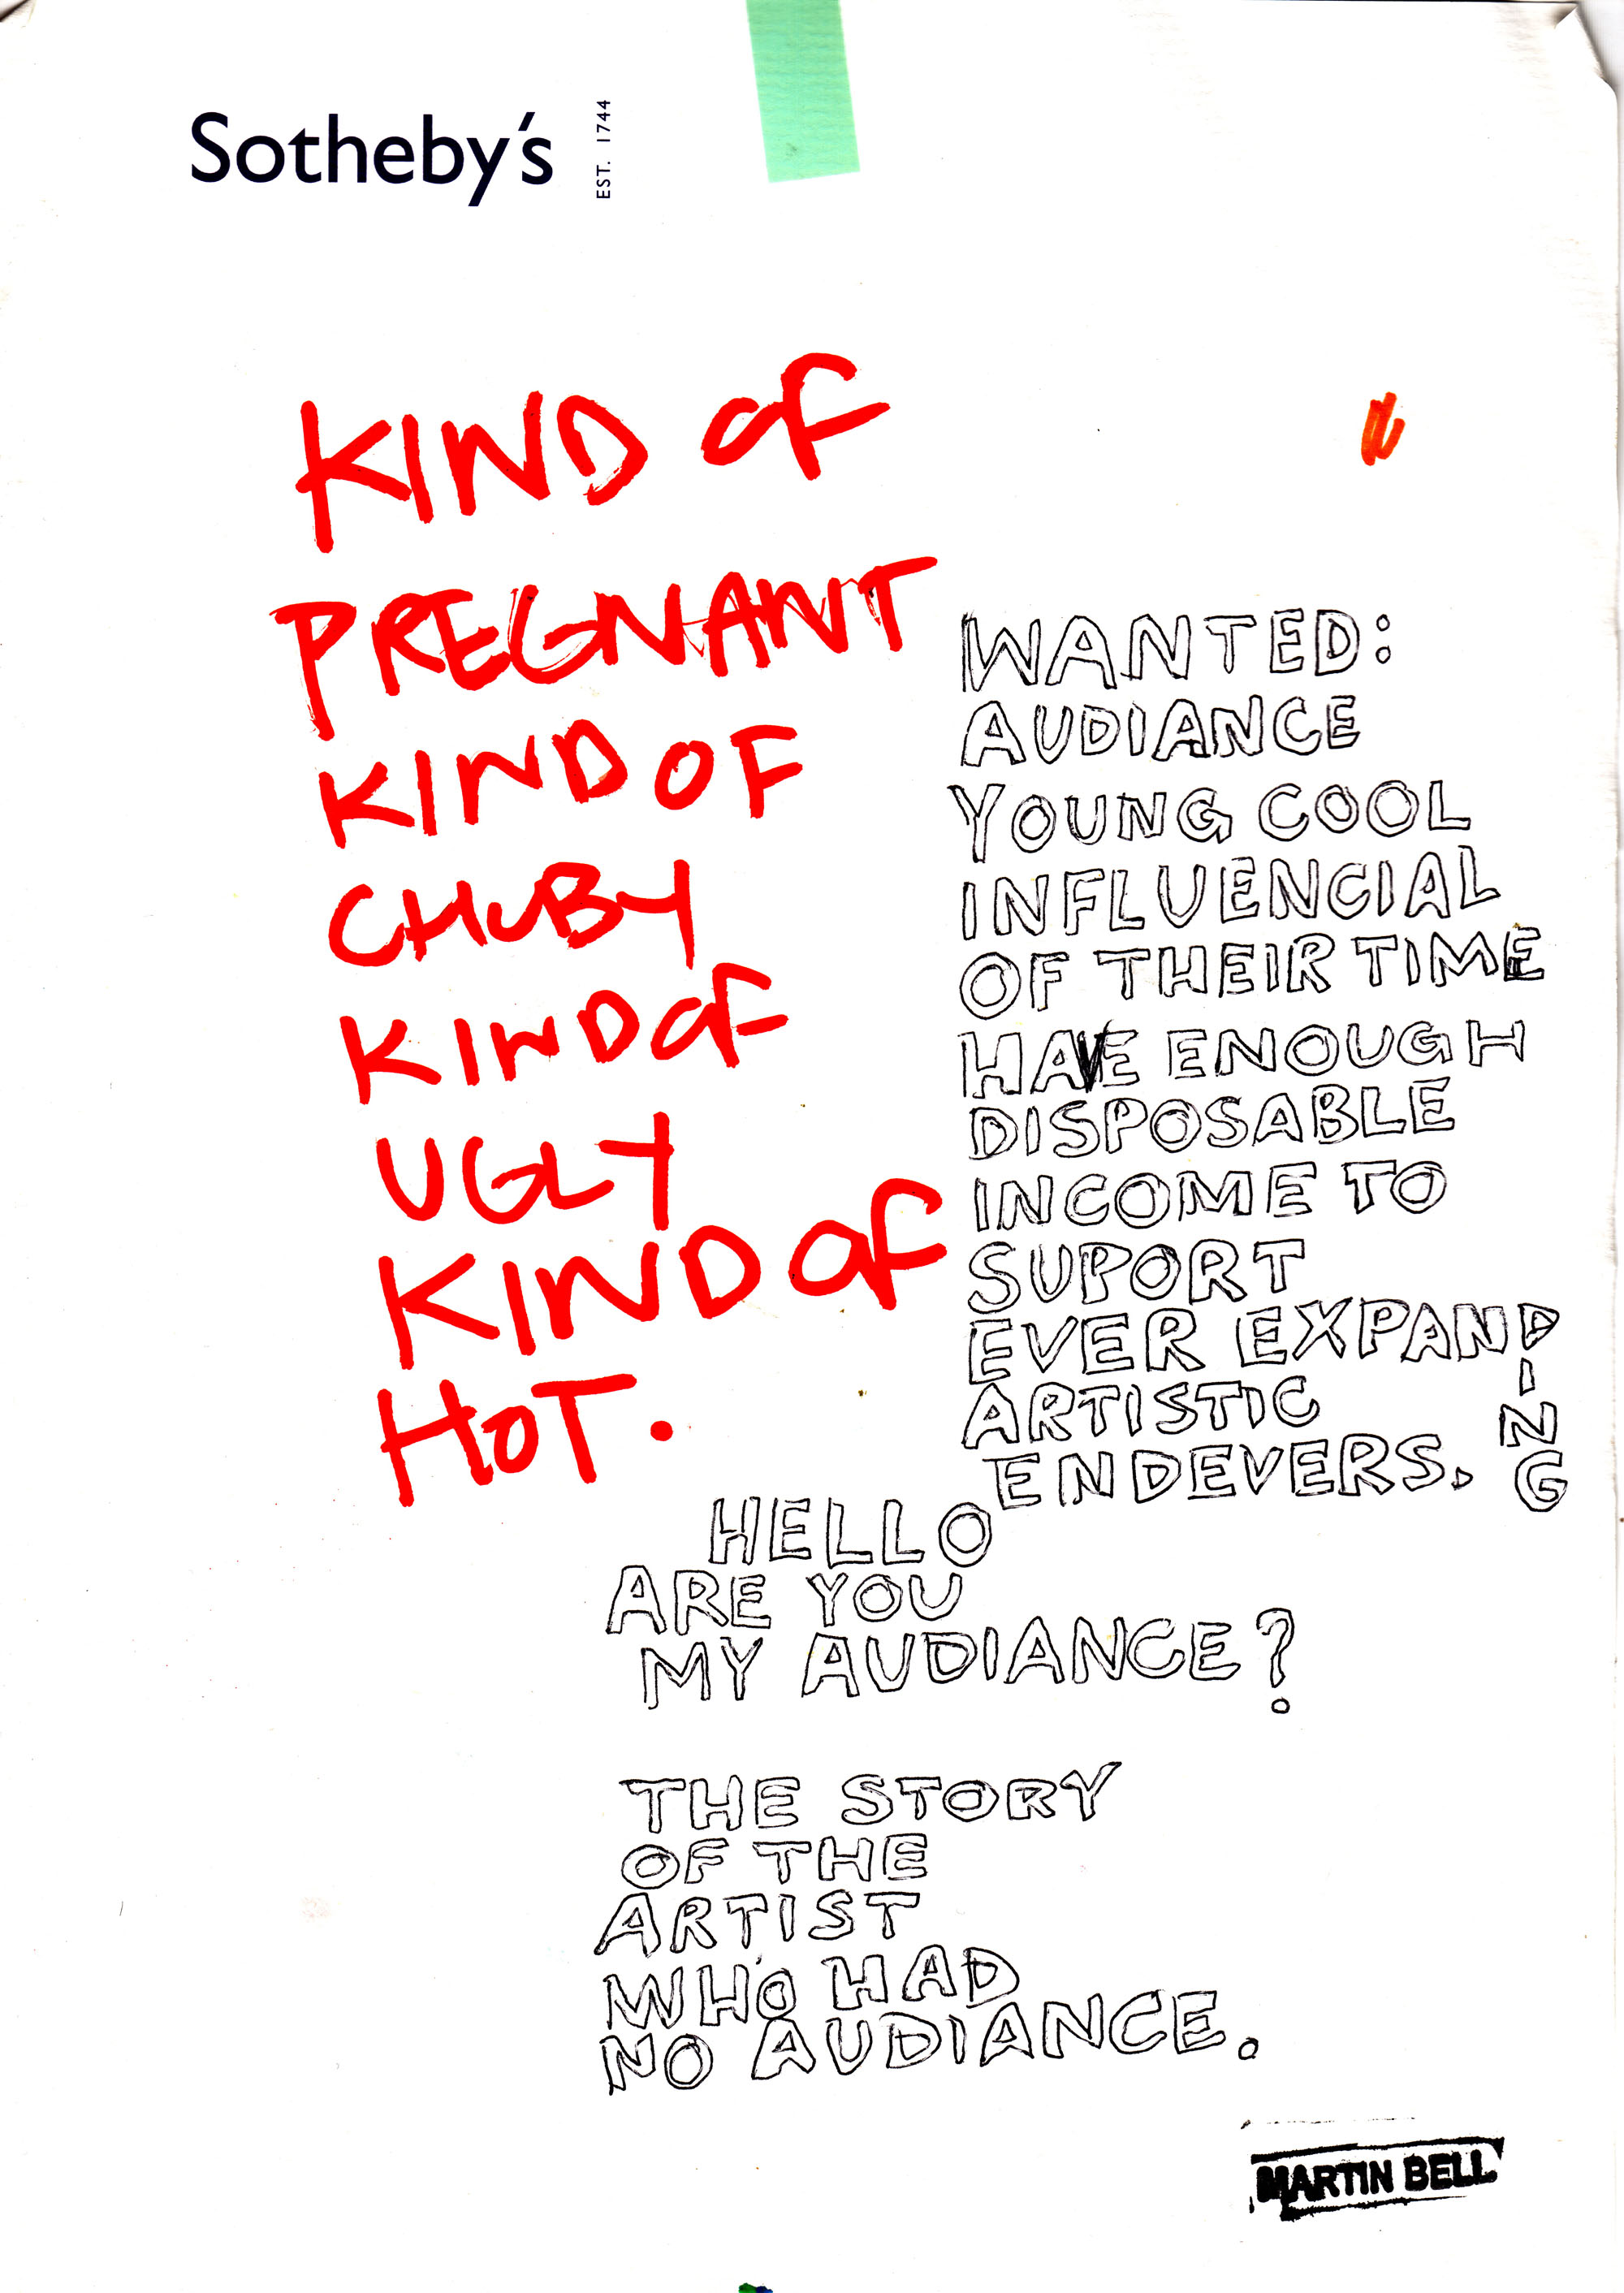 Sotheby's EST. 1744
KIND OF
PREGNANT
KIND OF
CHUBY
KIND OF
UGLY
KIND OF
HOT.
WANTED:
AUDIANCE
YOUNG COOL
INFLUENCIAL
OF THEIR TIME
HAVE ENOUGH
DISPOSABLE
INCOME TO
SUPORT
EVER EXPANDING
ARTISTIC
ENDEVERS.
HELLO
ARE YOU
MY AUDIANCE?
THE STORY
OF THE
ARTIST
WHO HAD
NO AUDIANCE.
MARTIN BELL